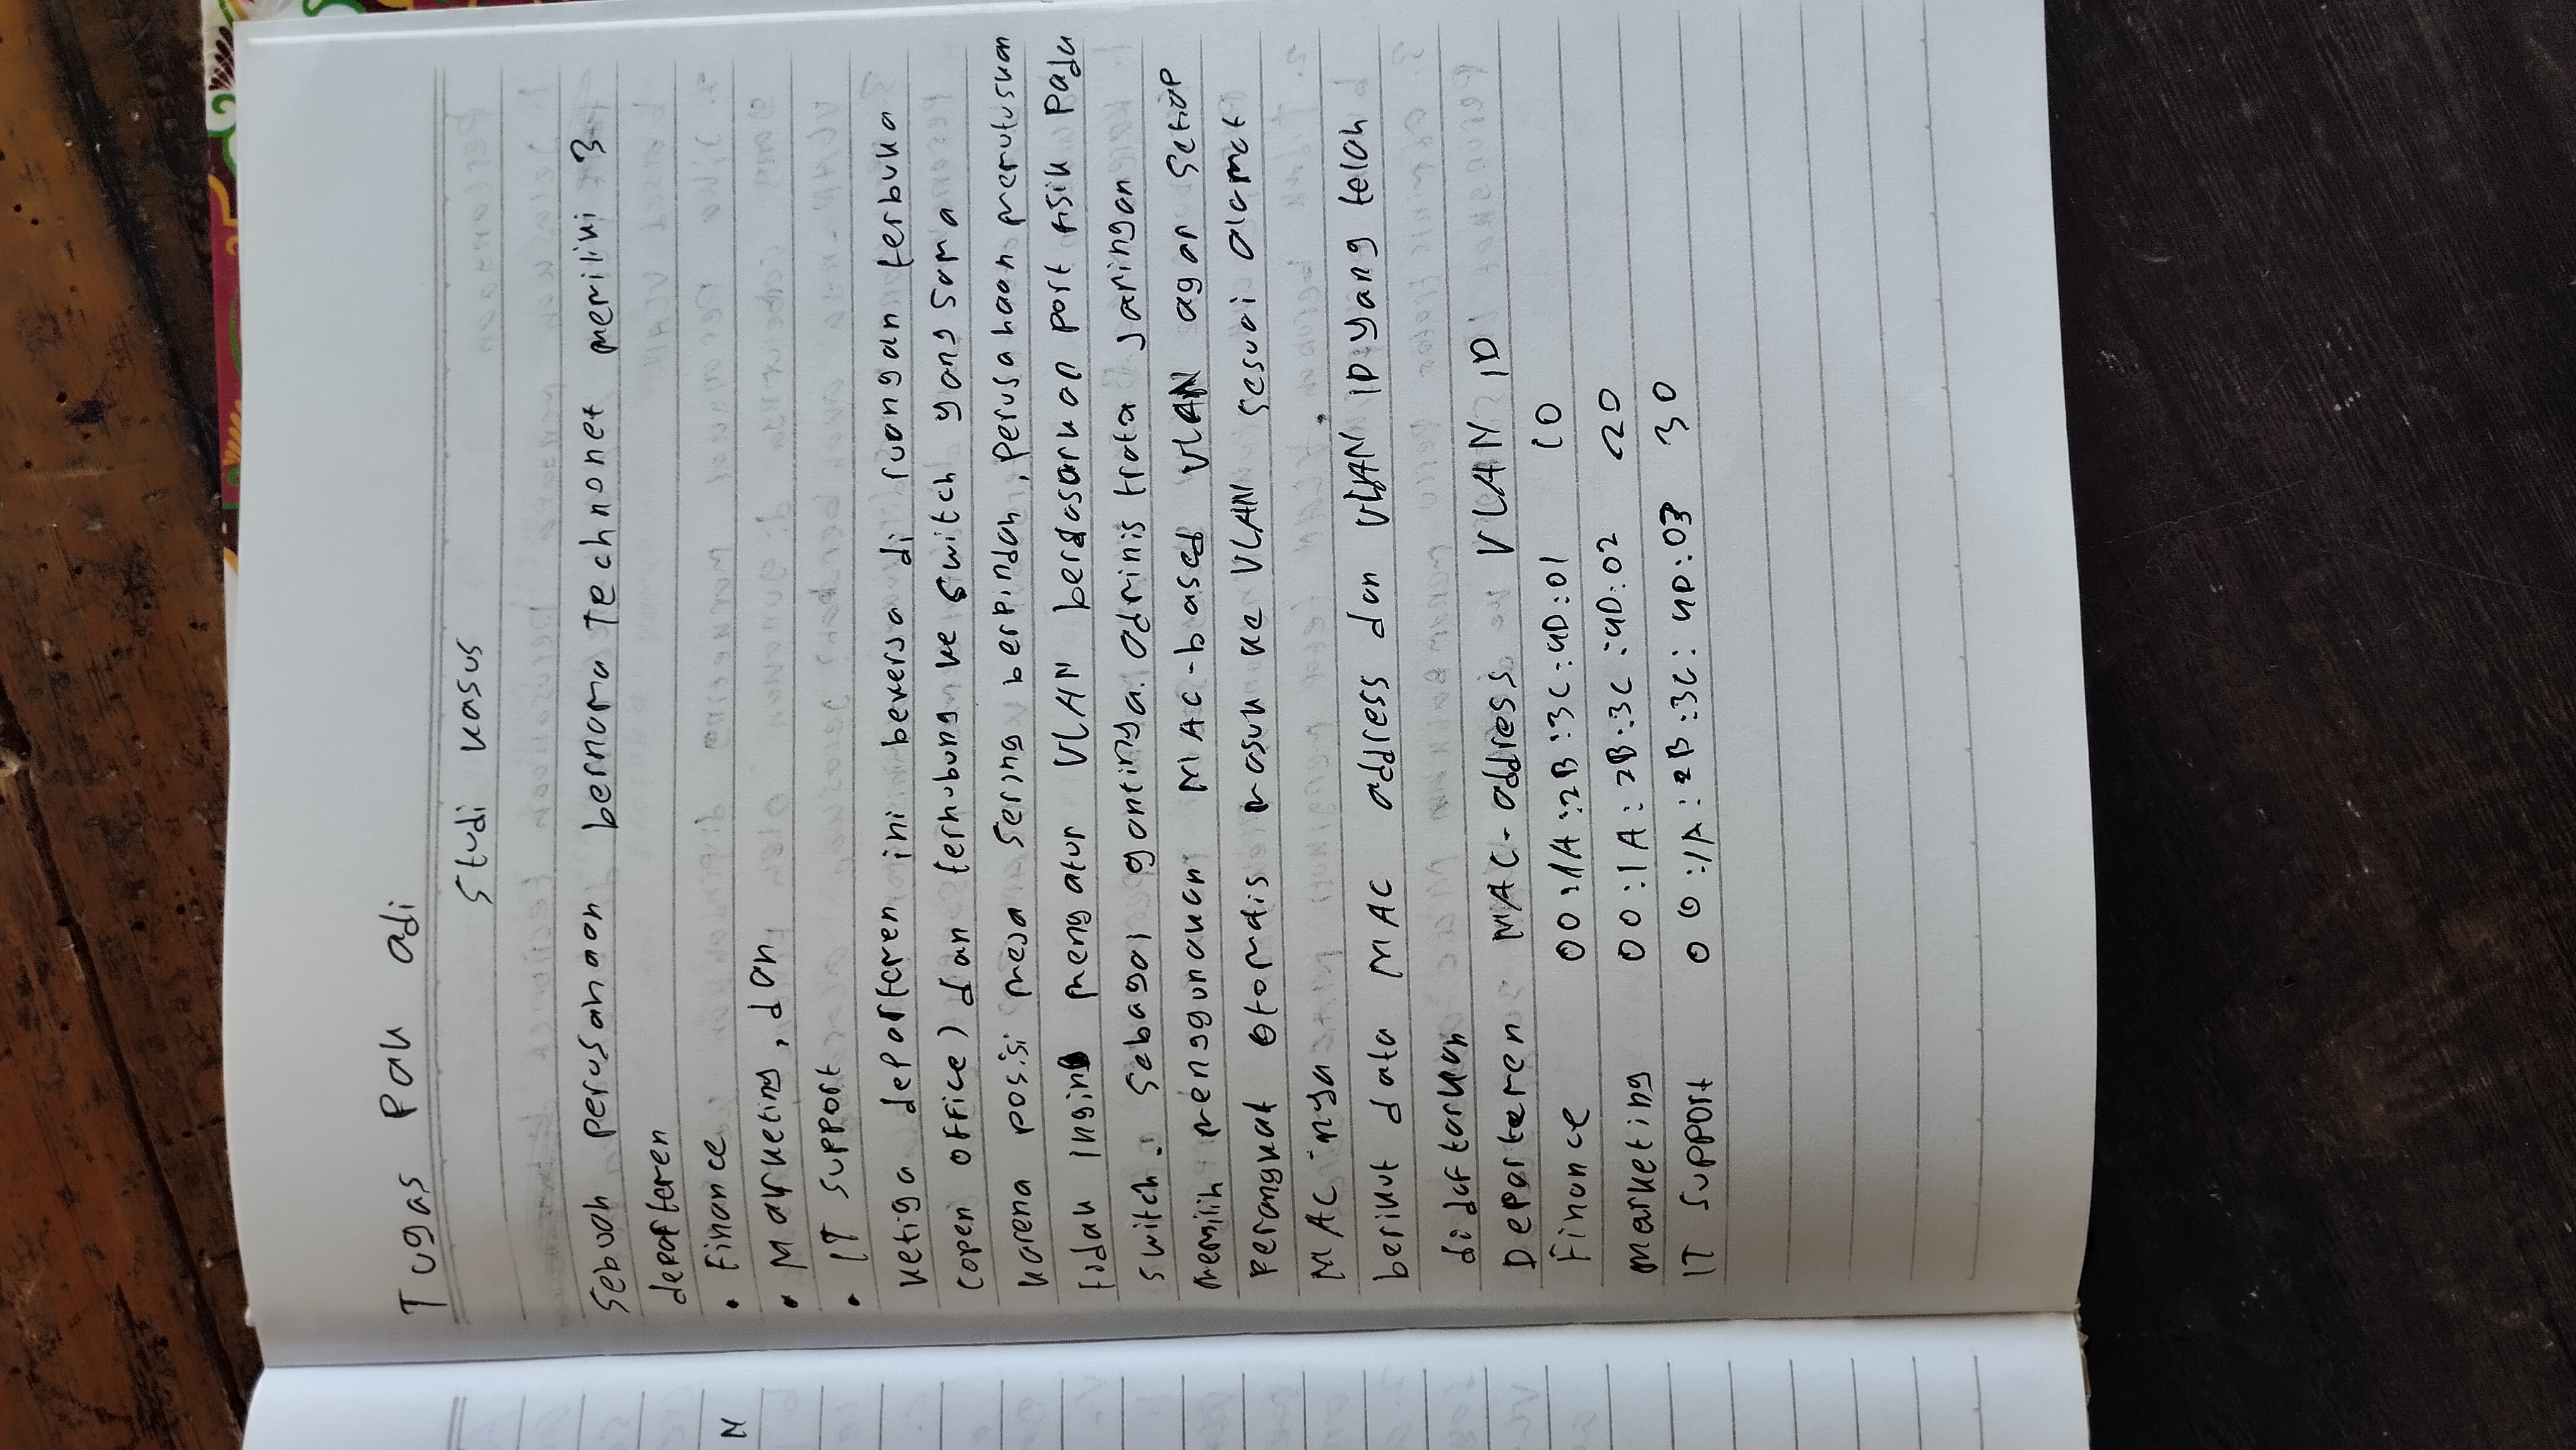 Tugas Pak adi
Studi kasus
Sebuah perusahaan bernama Technonet memiliki 3
departemen
• Finance
• Marketing, dan
• IT support
ketiga departemen ini bekerja di ruangan terbuka
(open office) dan terhubung ke switch yang sama
karena posisi meja sering berpindah, perusahaan memutuskan
tidak ingin mengatur VLAN berdasarkan port fisik pada
switch. Sebagai gantinya. administrata jaringan
memilih menggunakan MAC-based VLAN agar setiap
perangkat otomatis masuk ke VLAN sesuai alamat
MAC inya
berikut data MAC address dan VLAN ID yang telah
didaftarkan
Departemen MAC-address VLAN ID
Finance 00:1A:2B:3C:4D:01 10
marketing 00:1A:2B:3C:4D:02 20
IT support 00:1A:2B:3C:4D:03 30
N